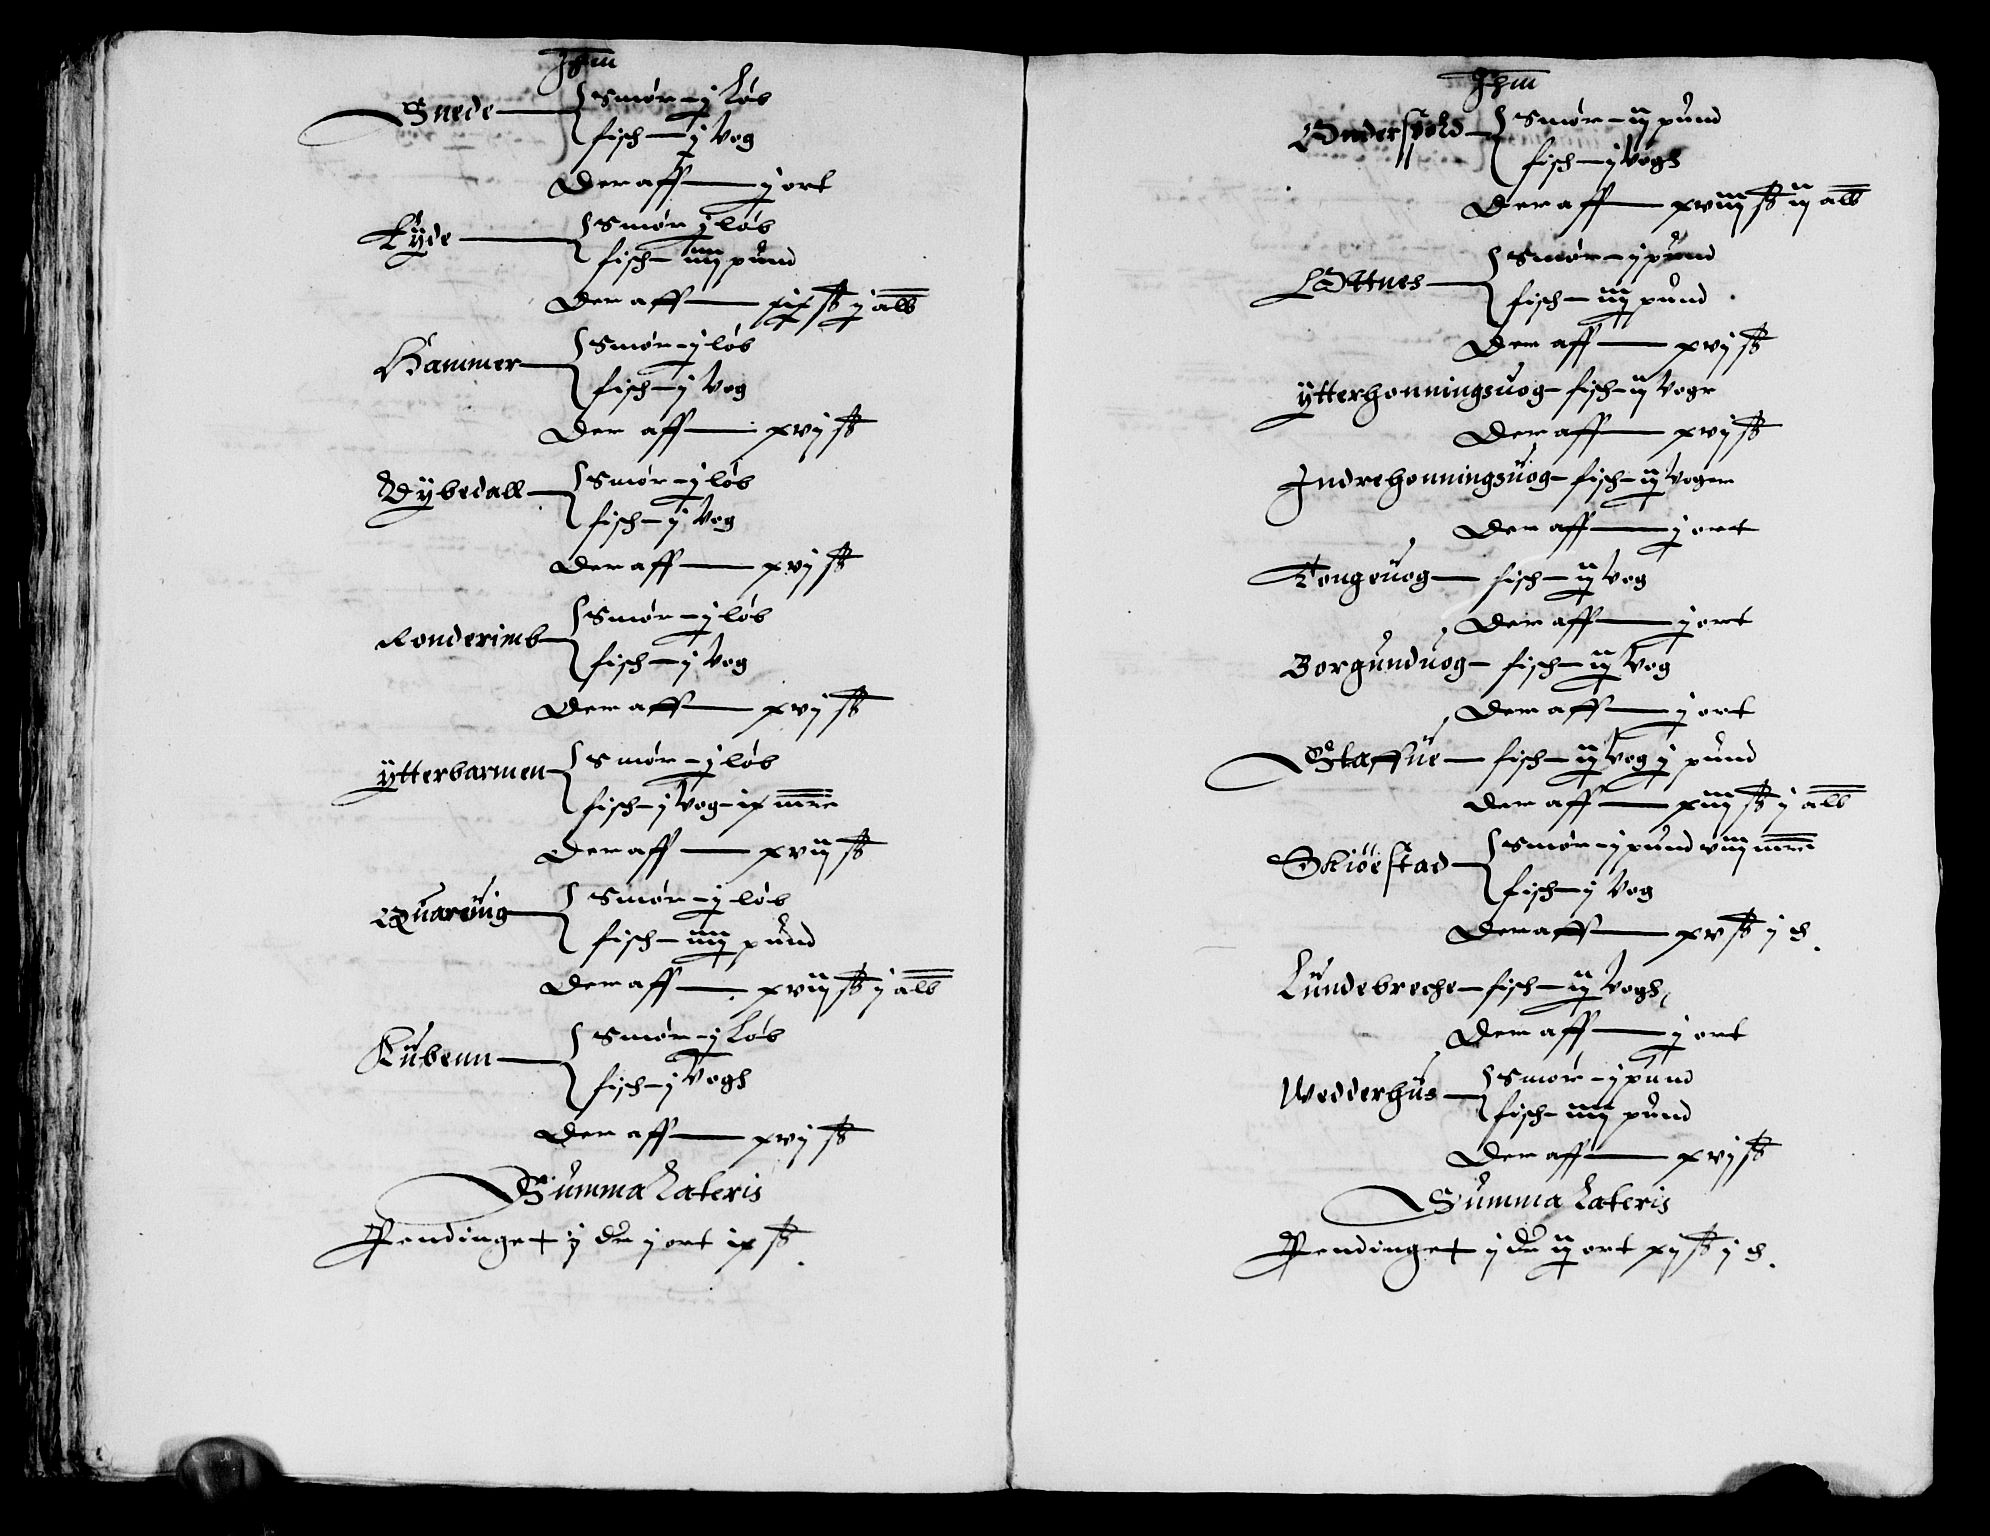 Jhm
Snede { Smør – j Løb
fisch – j Vog
Der aff – j ort
Eÿde { Smør j løb
fisch – iiij pund
Der aff – xix ß j alb
Hammer { Smør – j løb
fisch – j Vog
Der aff – xvj ß
Dÿbedall { Smør – j løb
fisch – j Vog
Der aff – xvj ß
Ronderimb { Smør – j løb
fisch – j Vog
Der aff – xvj ß
ÿtterbarmen { Smør – j løb
fisch – j Vog – ix mrc
Der aff – xvij ß
Quareuig { Smør – j løb
fisch – iiij pund
Der aff – xvij ß j alb
Kubenn { Smør – j Løb
fisch – j Vogh
Der aff – xvj ß
Summa Lateris
Pendinge + ij dr j ort ix ß
Jhm
{ Smør – ij pund
fisch – j Vogh
Der aff – xviij ß ij alb
Ottnes { Smør – j pund
fisch – iij pund
Der aff – xvj ß
ÿtterhonningsuog – fisch – ij Vogr
Der aff – xvj ß
Jndrehonningsuog – fisch – iij Voger
Der aff – j ort
Tongeuog – fisch – iij Vog
Der aff – j ort
Borgunduog – fisch – iij Vog
Der aff – j ort
Staffue – fisch – ij Vog j pund
Der aff – xiiij ß j alb
Skiøestad { Smør – j pund viij mrc
fisch – j Vog
Der aff – xv ß j d
Lundebreche – fisch – iij Vogh
Der aff – j ort
Wedderhus { Smør – j pund
fisch – iiij pund
Der aff – xvj ß
Summa Lateris
Pendinge + ij dr iij ort xj ß j d